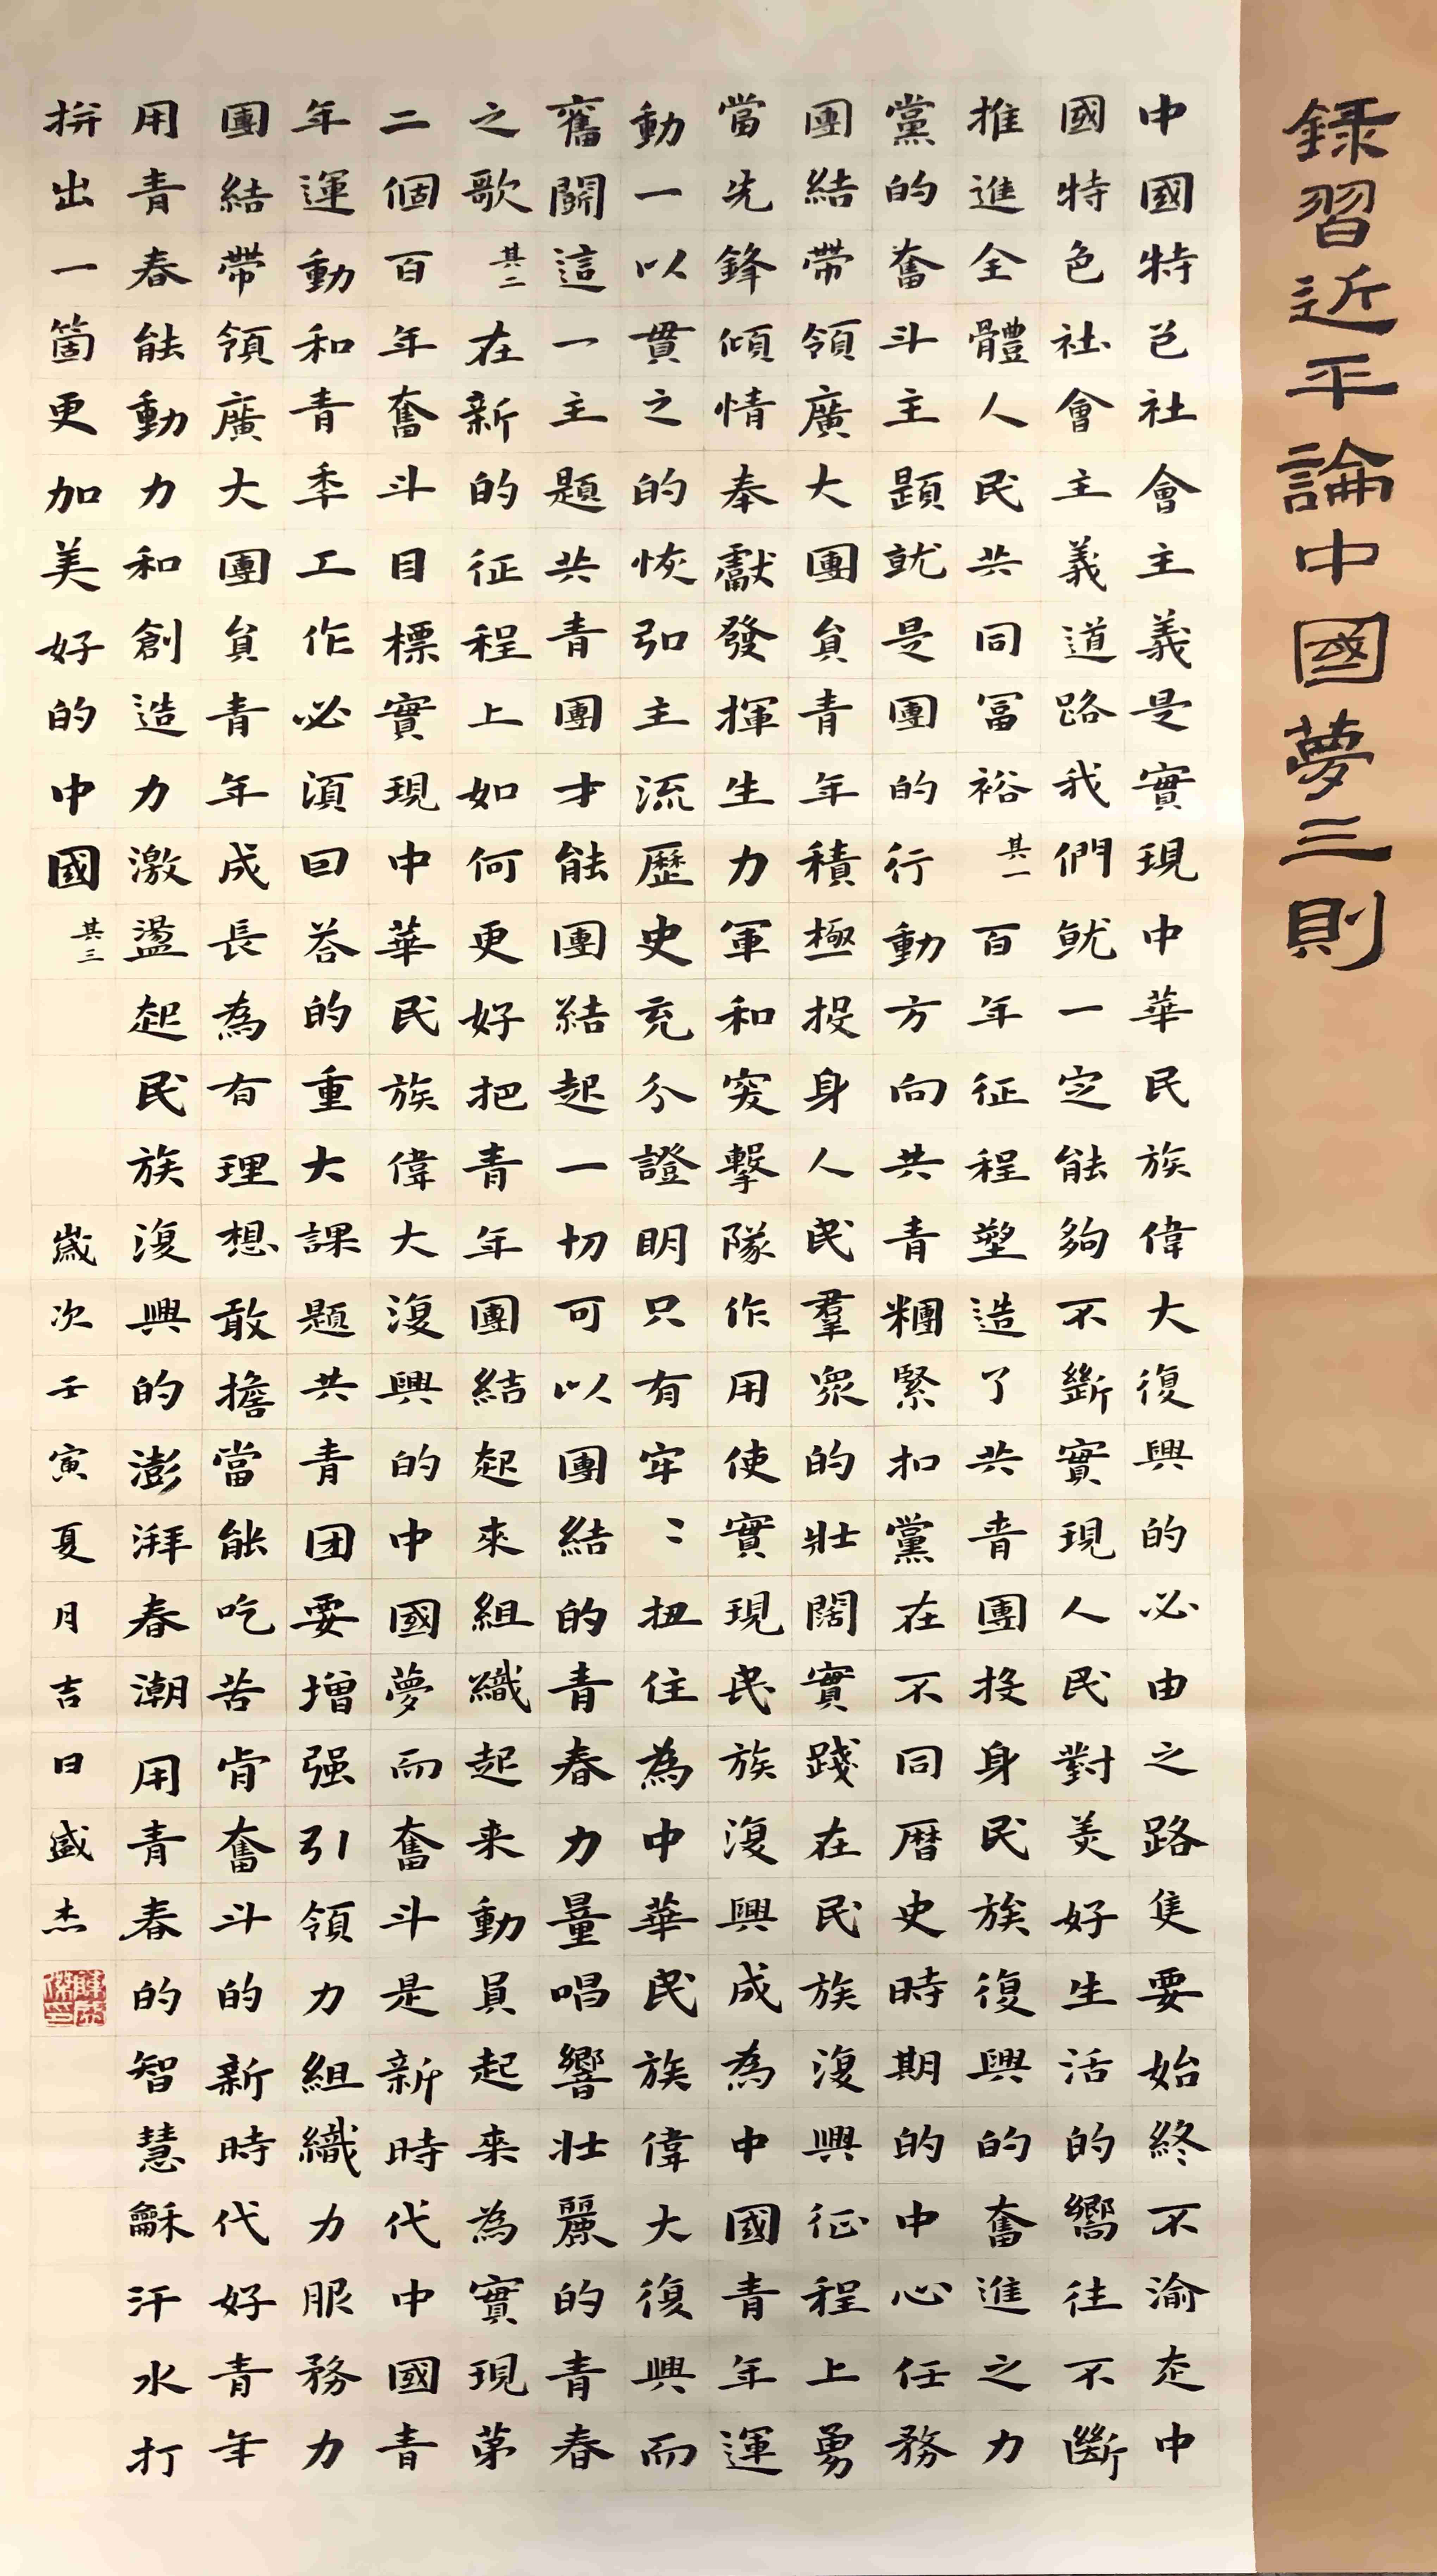 録習近平論中國夢三則
中國特色社會主義是實現中華民族偉大復興的必由之路隻要始終不渝走中
國特色社會主義道路我們就一定能夠不斷實現人民對美好生活的嚮往不斷
推進全體人民共同富裕其一百年征程塑造了共青團投身民族復興的奮進之力
黨的奮斗主題就是團的行動方向共青團緊扣黨在不同曆史時期的中心任務
團結帶領廣大團員青年積極投身人民羣眾的壯闊實踐在民族復興征程上勇
當先鋒傾情奉獻發揮生力軍和突擊隊作用使實現民族復興成為中國青年運
動一以貫之的恢弘主流歷史充分證明只有牢〻扭住為中華民族偉大復興而
奮鬭這一主題共青團才能團結起一切可以團結的青春力量唱響壯麗的青春
之歌其二在新的征程上如何更好把青年團結起來組織起来動員起来為實現苐
二個百年奮斗目標實現中華民族偉大復興的中國夢而奮斗是新時代中國青
年運動和青年工作必須回答的重大課題共青团要增强引領力組織力服務力
團結帶領廣大團員青年成長為有理想敢擔當能吃苦肯奮斗的新時代好青年
用青春能動力和創造力激盪起民族復興的澎湃春潮用青春的智慧龢汗水打
拚出一箇更加美好的中國其三
歲次壬寅夏月吉日盛杰